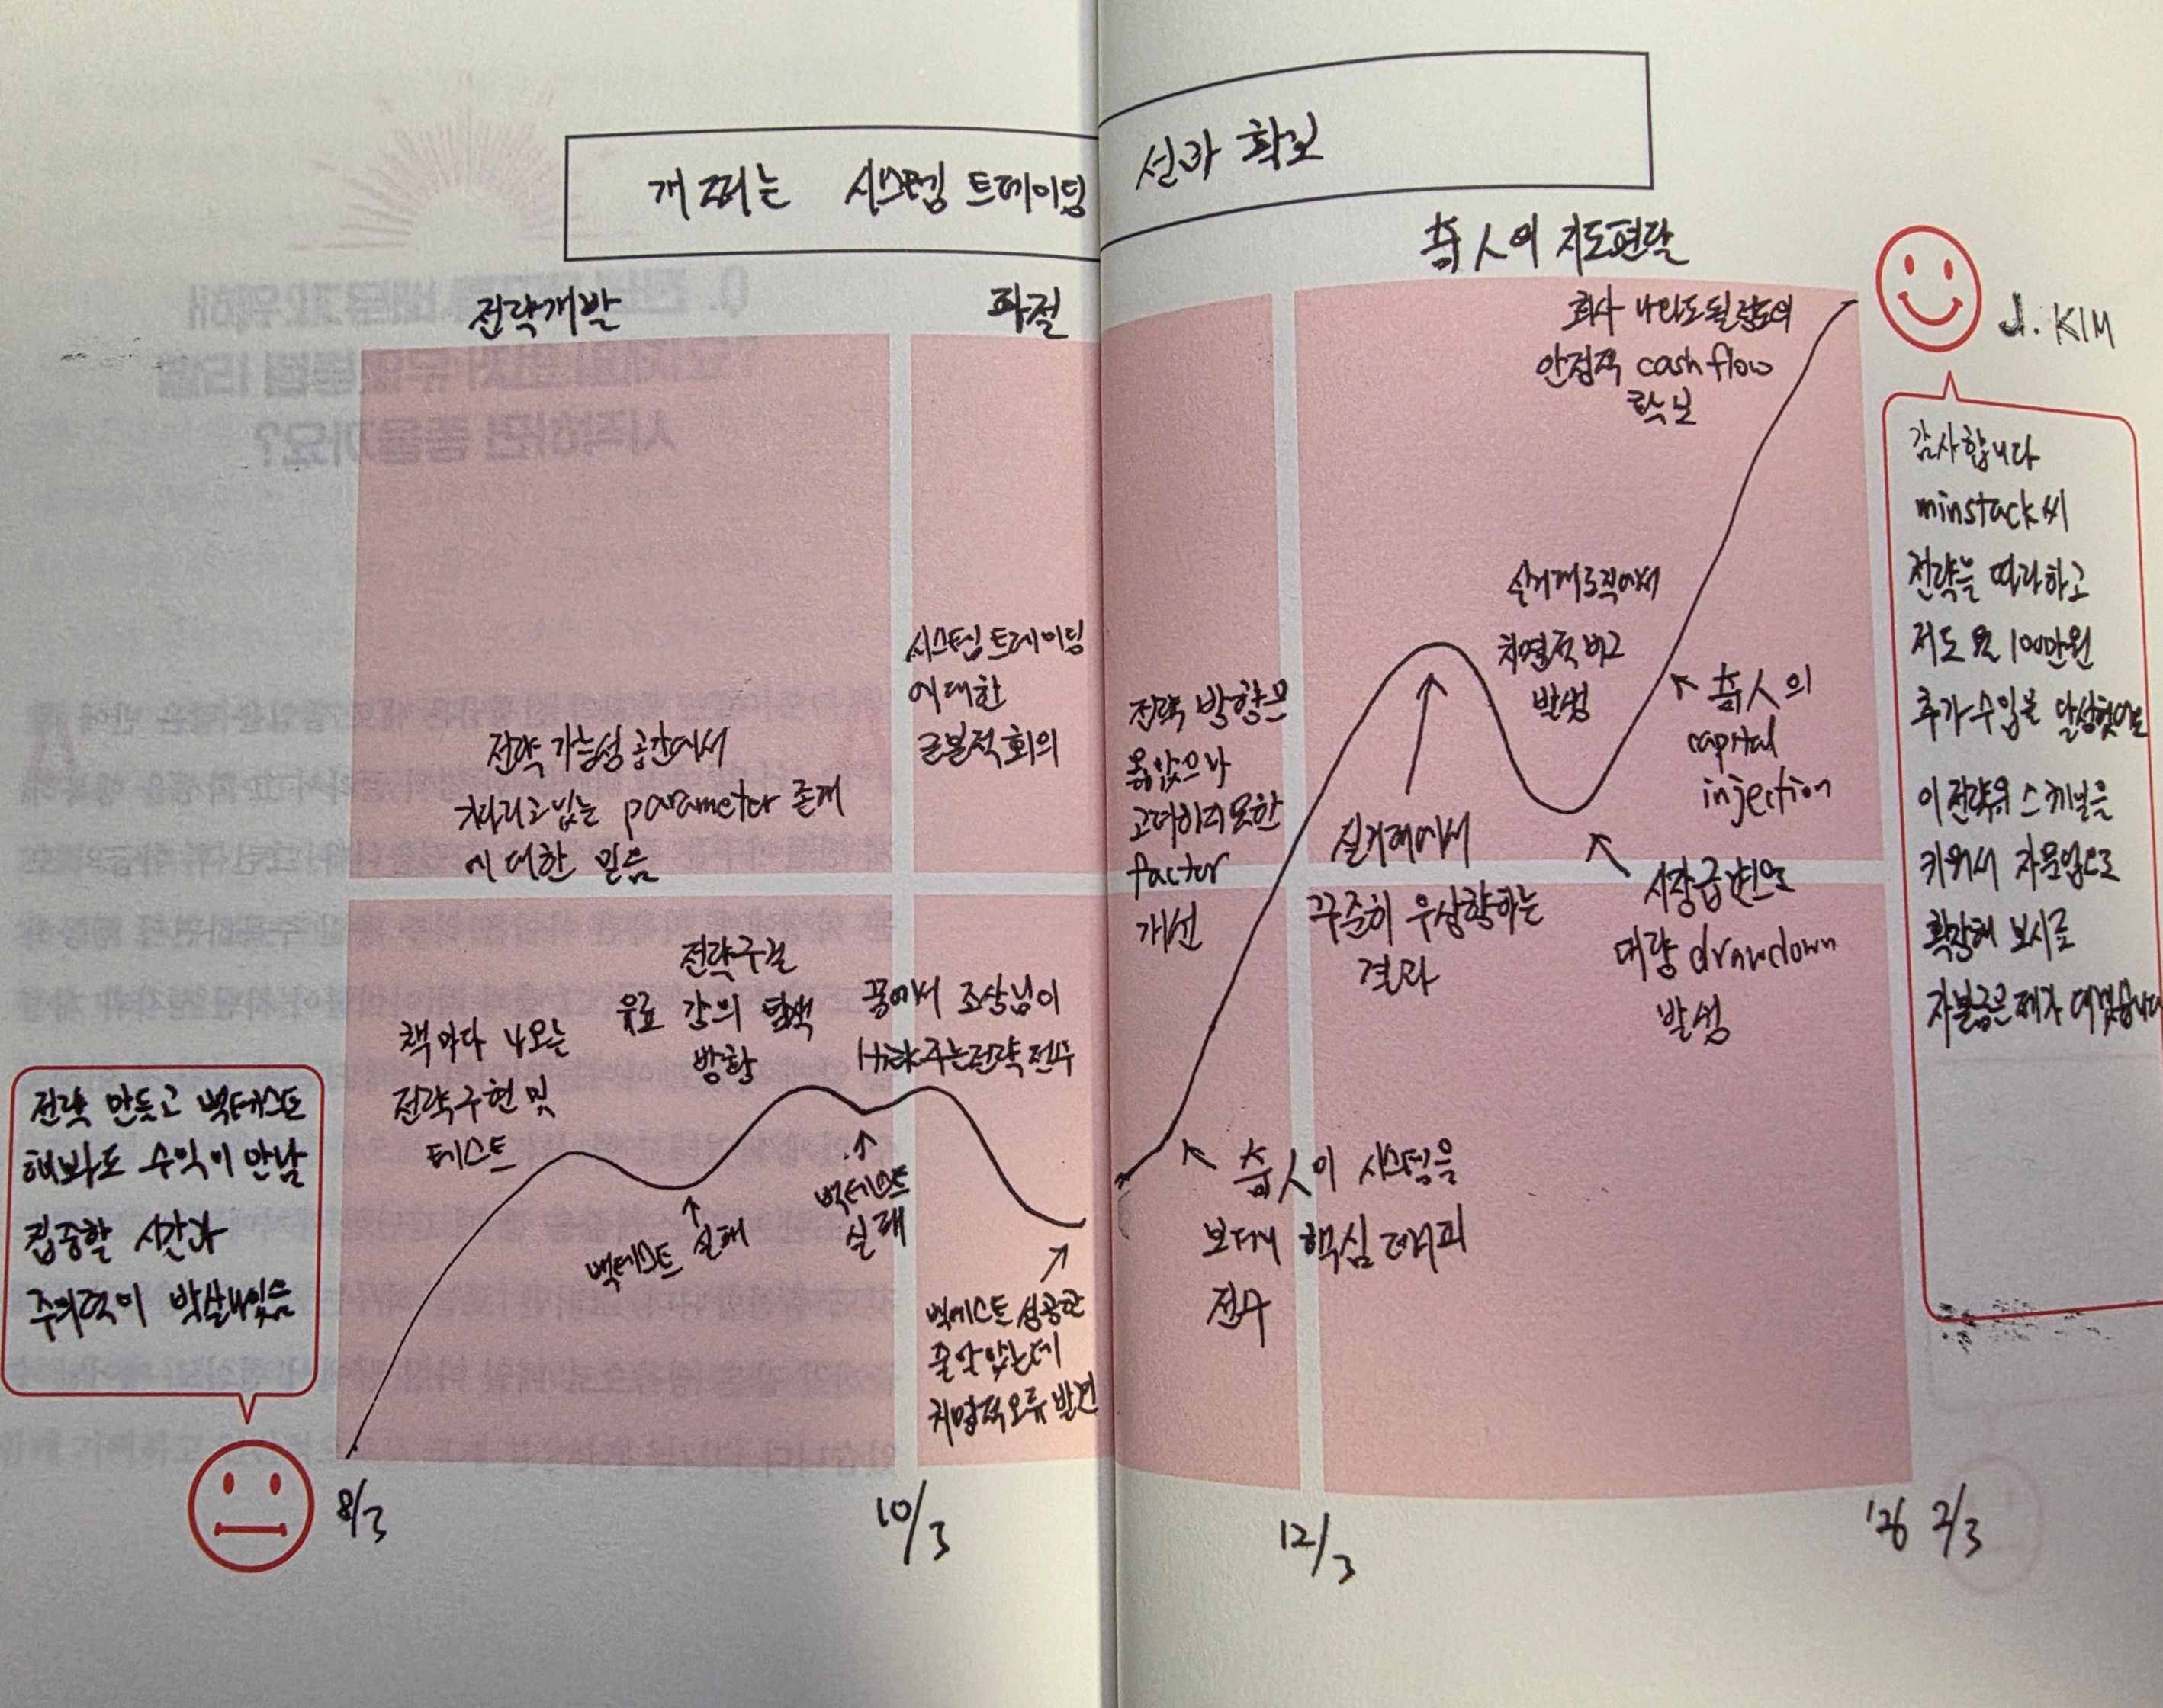 개쩌는 시스템 트레이딩 성과 확보
전략개발
좌절
츔人의 지도편달
회사 나와도 될 정도의
안정적 cash flow
확보
J. KIM
감사합니다
minstack씨
전략을 따라하고
저도 월 100만원
추가수입을 달성했어요
이 전략의 스케일을
키워서 자문업으로
확장해 보시죠
자본금은 제가 대겠습니다
실거래 로직에서
치명적 버그
발생
츔人의
capital
injection
시스템 트레이딩
에 대한
근본적 회의
전략 방향은
옳았으나
고려하지 못한
factor
개선
전략 가능성 공간에서
parameter 존재
에 대한 믿음
실거래에서
꾸준히 우상향하는
결과
시장급변으로
대량 drawdown
발생
책마다 나오는
전략구현 및
테스트
전략구걸
유료 강의 탐색
방황
꿈에서 조상님이
전략 전수
전략 만들고 백테스트
해봐도 수익이 안남
집중할 시간과
주의력이 박살나있음
백테스트 실패
백테스트
실패
백테스트 성공한
줄 알았는데
치명적 오류 발견
츔人이 시스템을
보더니 핵심
전수
8/3
10/3
12/3
'26 2/3